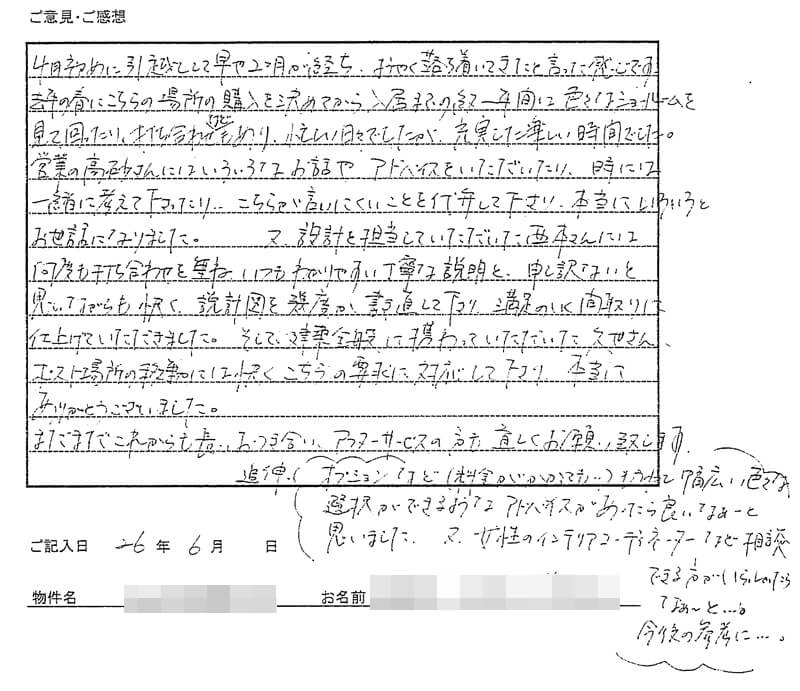 ご意見・ご感想
4月初めに引越しして早や2ヶ月が経ち、ようやく落ち着いてきたと言った感じです
昨年の春にこちらの場所の購入を決めてから入居までの約一年間は色々なショールームを
見て回ったり、打ち合わせなどもあり、忙しい日々でしたが、充実した楽しい時間でした。
営業の高砂さんにはいろいろなお話や アドバイスをいただいたり、時には
一緒に考えて下さったり、こちらが言いにくいことを代弁して下さり、本当にいろいろと
お世話になりました。 又、設計を担当していただいた西本さんには
何度も打ち合わせを重ね、いつもわかりやすい丁寧な説明と、申し訳ないと
思いながらも快く、設計図を幾度か書き直して下さり 満足のいく間取りに
仕上げていただきました。そして、建築全般に携わっていただいた久世さん、
ポスト場所の移動には快くこちらの要求に対応して下さり 本当に
ありがとうございました。
まだまだこれからも長いおつき合い、アフターサービスの方も宜しくお願い致します
追伸.(オプションなど(料金がかかっても..)もう少し幅広い色々な
選択ができるようなアドバイスがあったら良いなぁーと
思いました. 又.女性のインテリアコーディネーターなど相談
できる方がいらしゃったら
なぁ〜と....
今後の参考に....
ご記入日 26年 6月 日
物件名 お名前